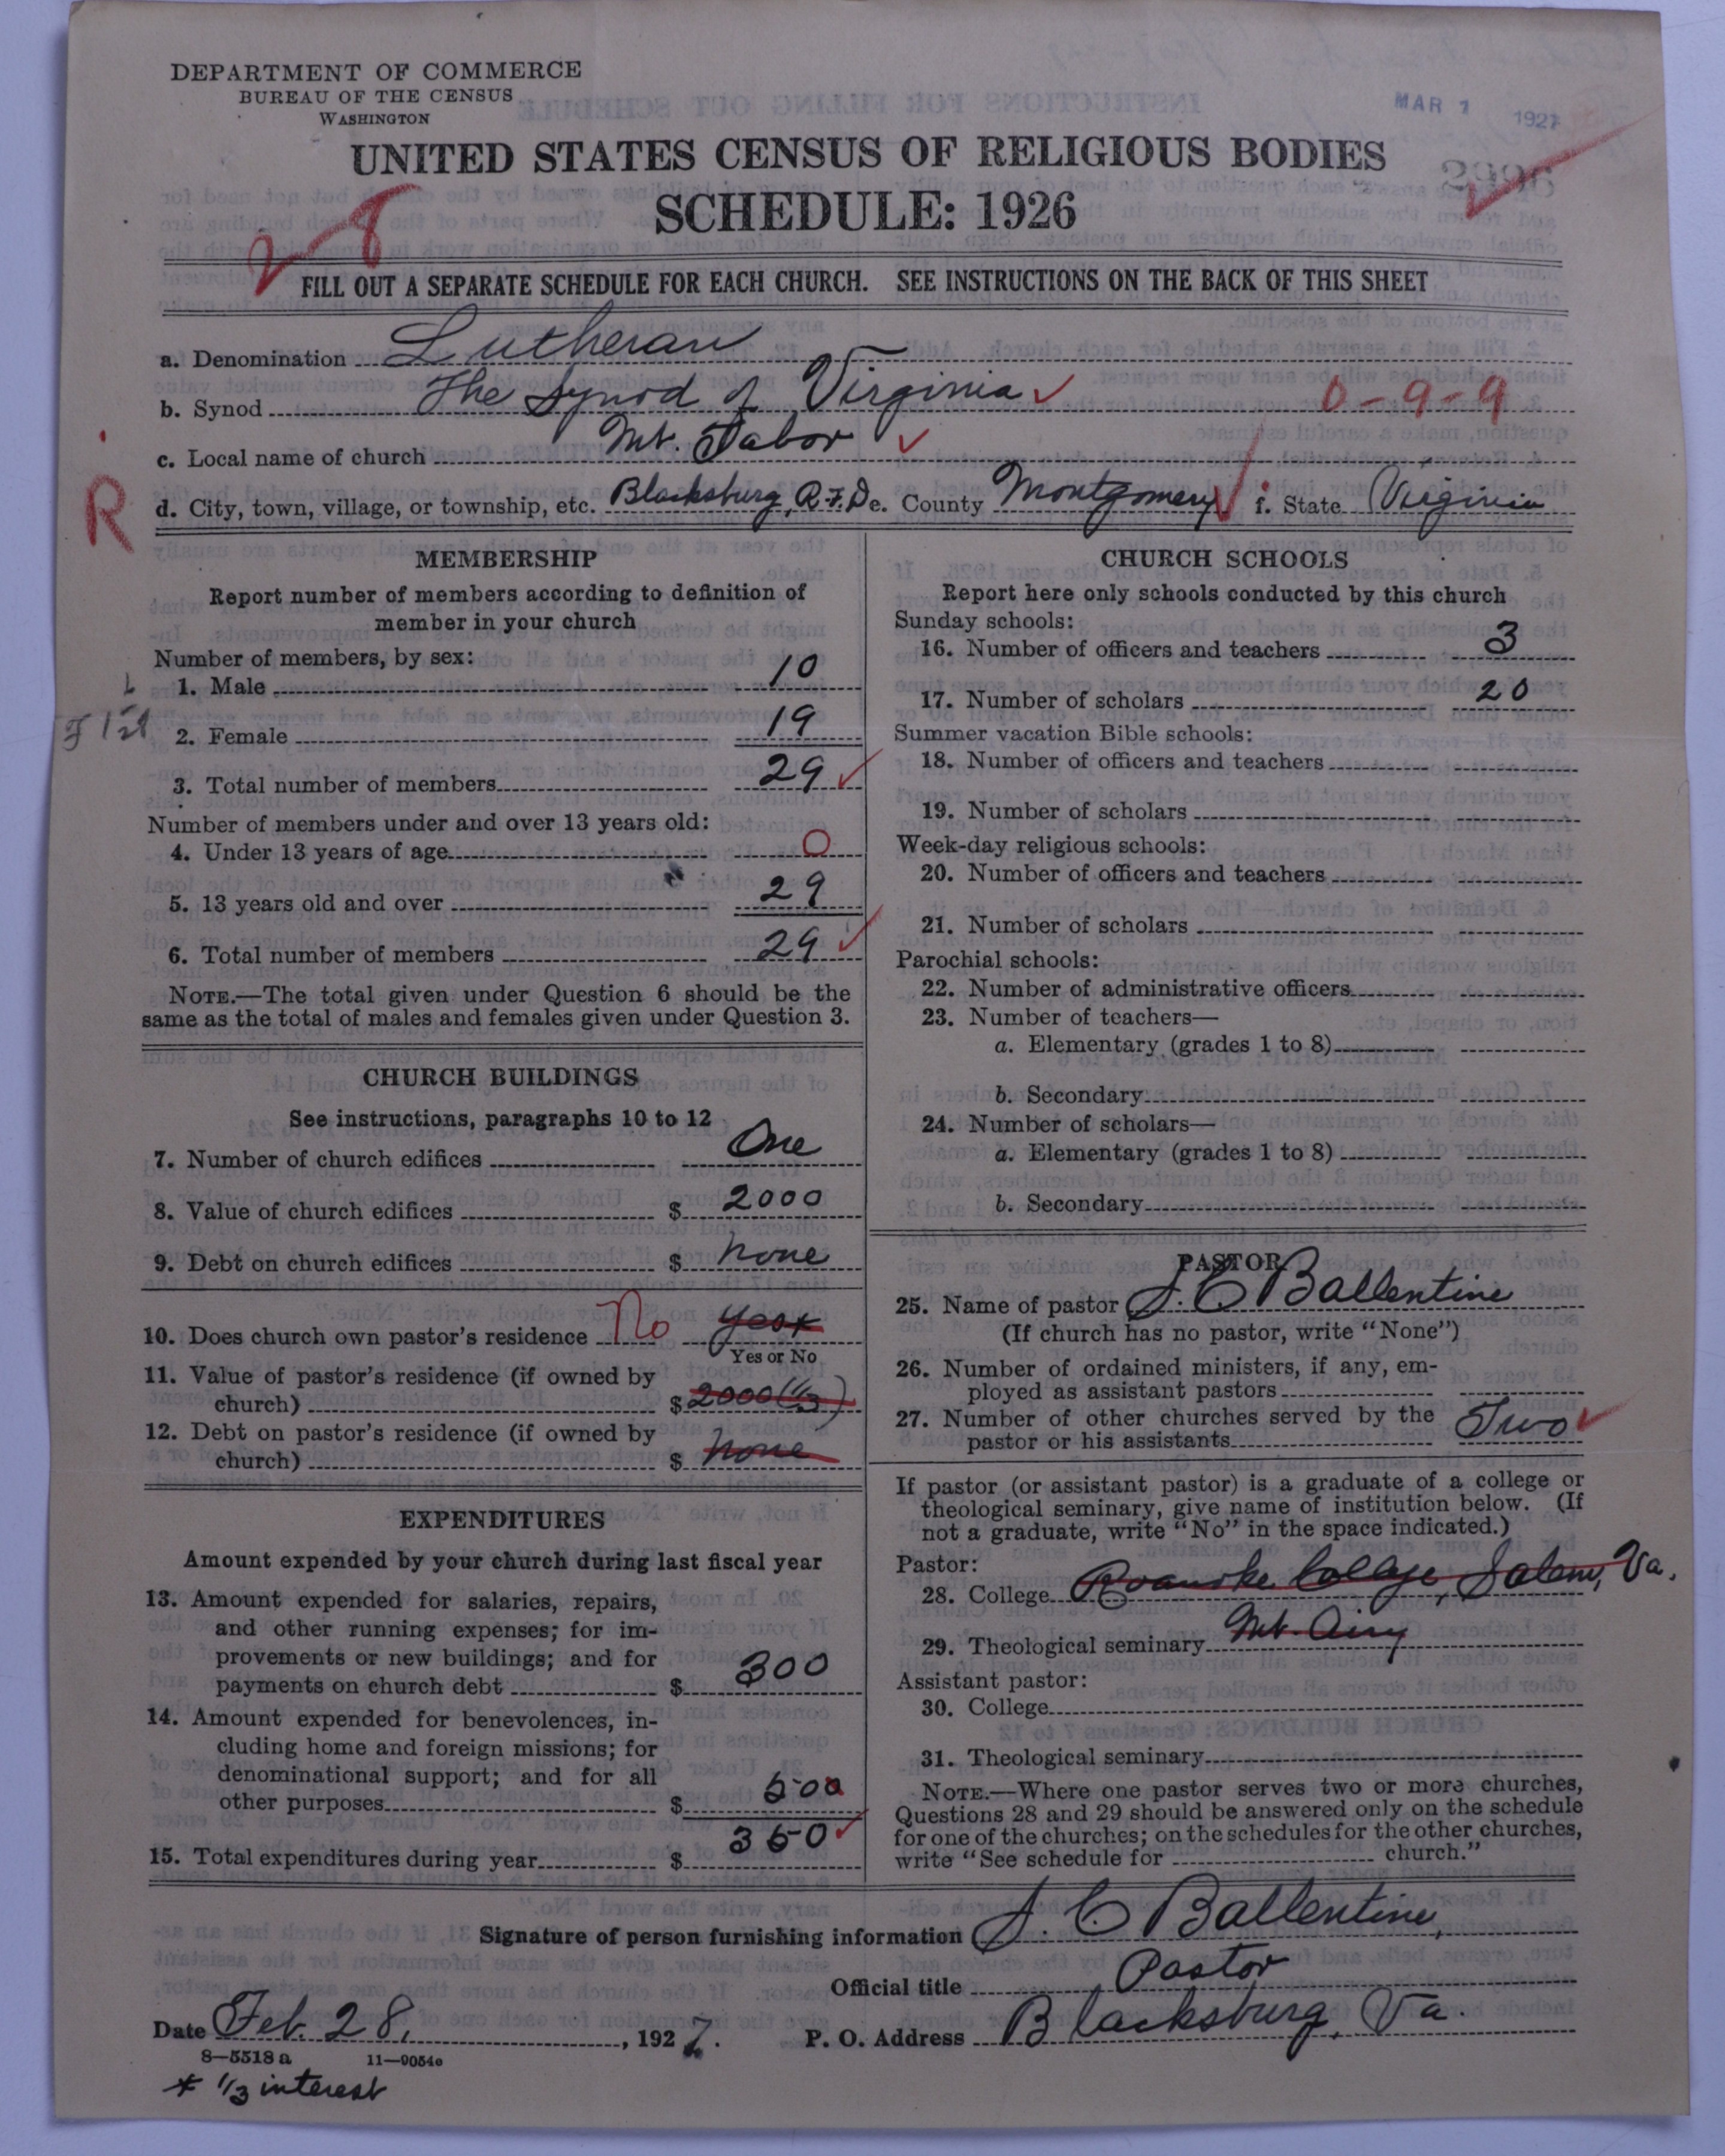 DEPARTMENT OF COMMERCE
BUREAU OF THE CENSUS
WASHINGTON
MAR 1 1927
UNITED STATES CENSUS OF RELIGIOUS BODIES
2996
SCHEDULE: 1926
28
FILL OUT A SEPARATE SCHEDULE FOR EACH CHURCH. SEE INSTRUCTIONS ON THE BACK OF THIS SHEET
a. Denomination Lutheran
b. Synod The Synod of Virginia 0-9-9
c. Local name of church Mt. Tabor
R
d. City, town, village, or township, etc. Blacksburg, R.F.D. e. County Montgomery f. State Virginia
MEMBERSHIP
Report number of members according to definition of
member in your church
Number of members, by sex:
1. Male 10
2. Female 19
3. Total number of members 29
Number of members under and over 13 years old:
4. Under 13 years of age 0
5. 13 years old and over 29
6. Total number of members 29
NOTE.—The total given under Question 6 should be the
same as the total of males and females given under Question 3.
CHURCH BUILDINGS
See instructions, paragraphs 10 to 12
7. Number of church edifices One
8. Value of church edifices $ 2000
9. Debt on church edifices $ none
10. Does church own pastor's residence No yes*
Yes or No
11. Value of pastor's residence (if owned by
church) $ 2000 (1/3)
12. Debt on pastor's residence (if owned by
church) $ none
EXPENDITURES
Amount expended by your church during last fiscal year
13. Amount expended for salaries, repairs,
and other running expenses; for im-
provements or new buildings; and for
payments on church debt $ 300
14. Amount expended for benevolences, in-
cluding home and foreign missions; for
denominational support; and for all
other purposes $ 500
15. Total expenditures during year $ 350
CHURCH SCHOOLS
Report here only schools conducted by this church
Sunday schools:
16. Number of officers and teachers 3
17. Number of scholars 20
Summer vacation Bible schools:
18. Number of officers and teachers
19. Number of scholars
Week-day religious schools:
20. Number of officers and teachers
21. Number of scholars
Parochial schools:
22. Number of administrative officers
23. Number of teachers—
a. Elementary (grades 1 to 8)
b. Secondary
24. Number of scholars—
a. Elementary (grades 1 to 8)
b. Secondary
PASTOR
25. Name of pastor J. C Ballentine
(If church has no pastor, write "None")
26. Number of ordained ministers, if any, em-
ployed as assistant pastors
27. Number of other churches served by the
pastor or his assistants Two
If pastor (or assistant pastor) is a graduate of a college or
theological seminary, give name of institution below. (If
not a graduate, write "No" in the space indicated.)
Pastor:
28. College Roanoke College, Salem, Va.
29. Theological seminary Mt. Airy
Assistant pastor:
30. College
31. Theological seminary
NOTE.—Where one pastor serves two or more churches,
Questions 28 and 29 should be answered only on the schedule
for one of the churches; on the schedules for the other churches,
write "See schedule for church."
Signature of person furnishing information J. C Ballentine
Official title Pastor
Date Feb. 28, 1927. P. O. Address Blacksburg, Va.
8—5518 a 11—9054e
* 1/3 interest